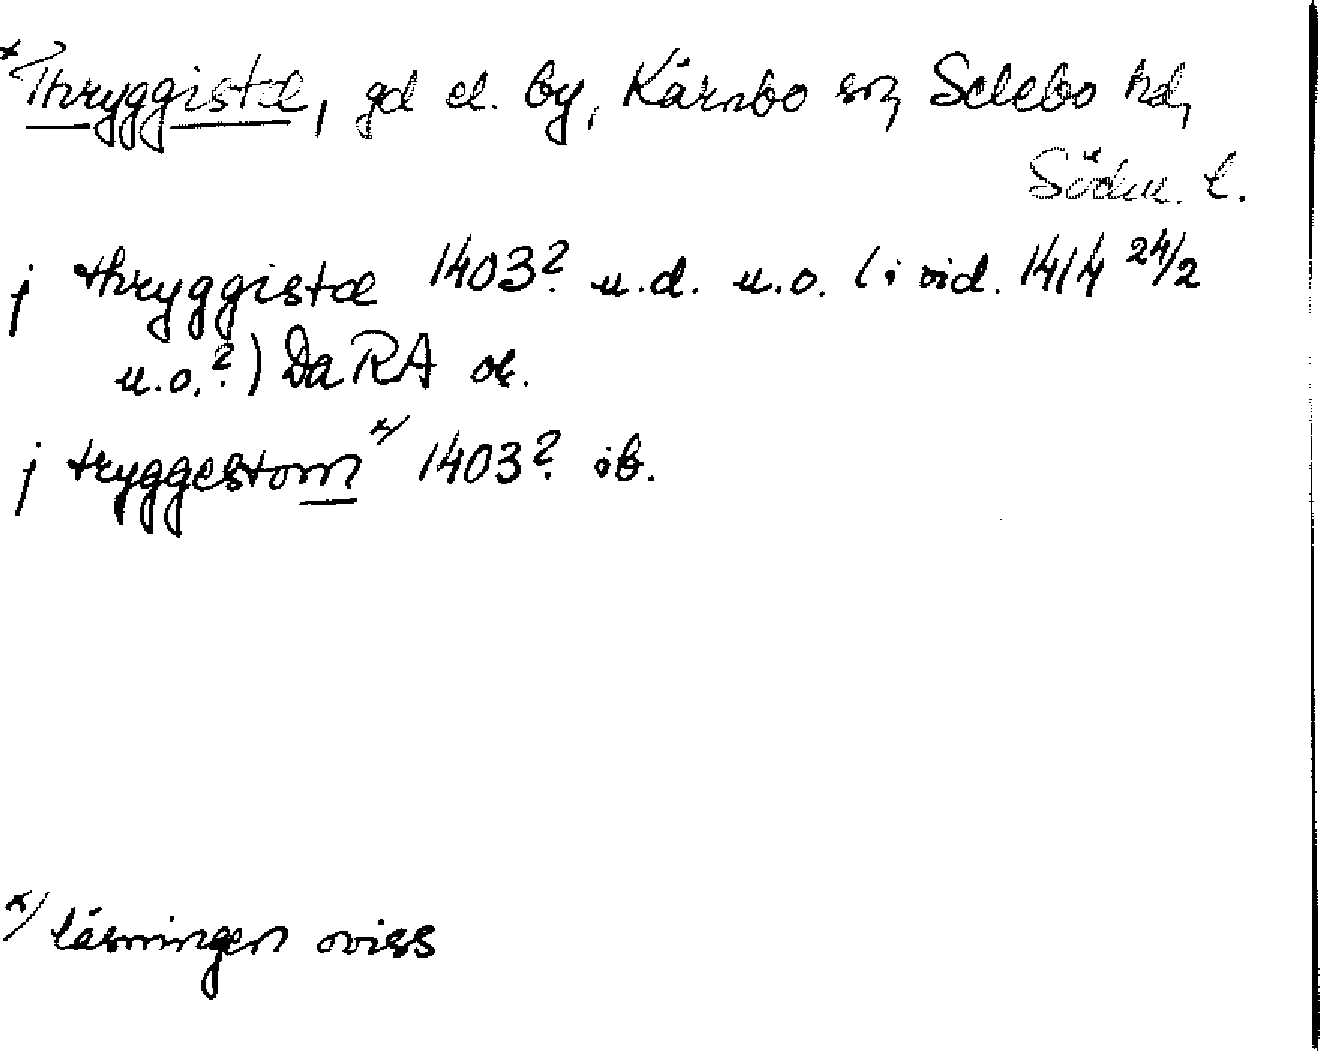 *Thryggistæ, gd el. by, Kärnbo sn, Selebo hd,
Södm. l.
j thryggistæ 1403? u.d. u.o. (i vid. 1414 24/2
u.o.?) Da RA or.
j tryggestom x) 1403? ib.
x) läsningen oviss